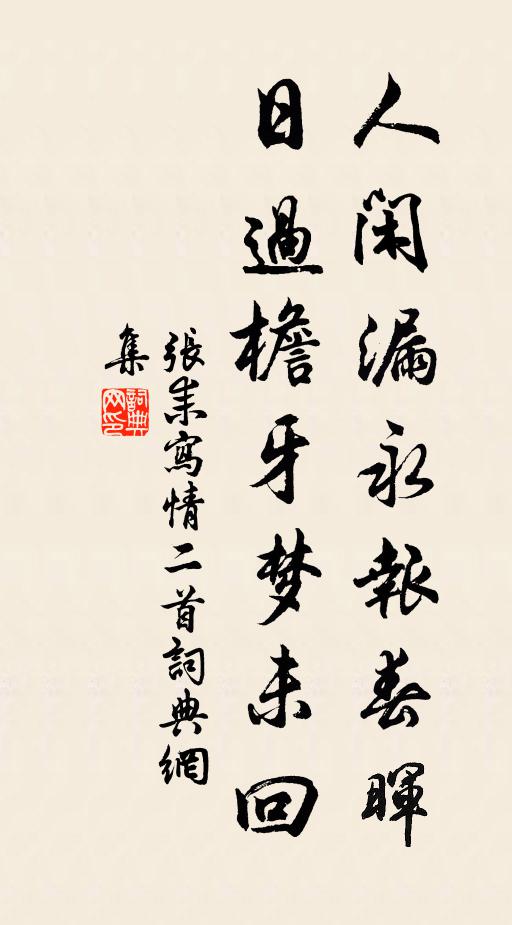 人闲漏永報春暉
日過檐牙梦未回
張耒寫情二首詞典網
集
詞典
网印